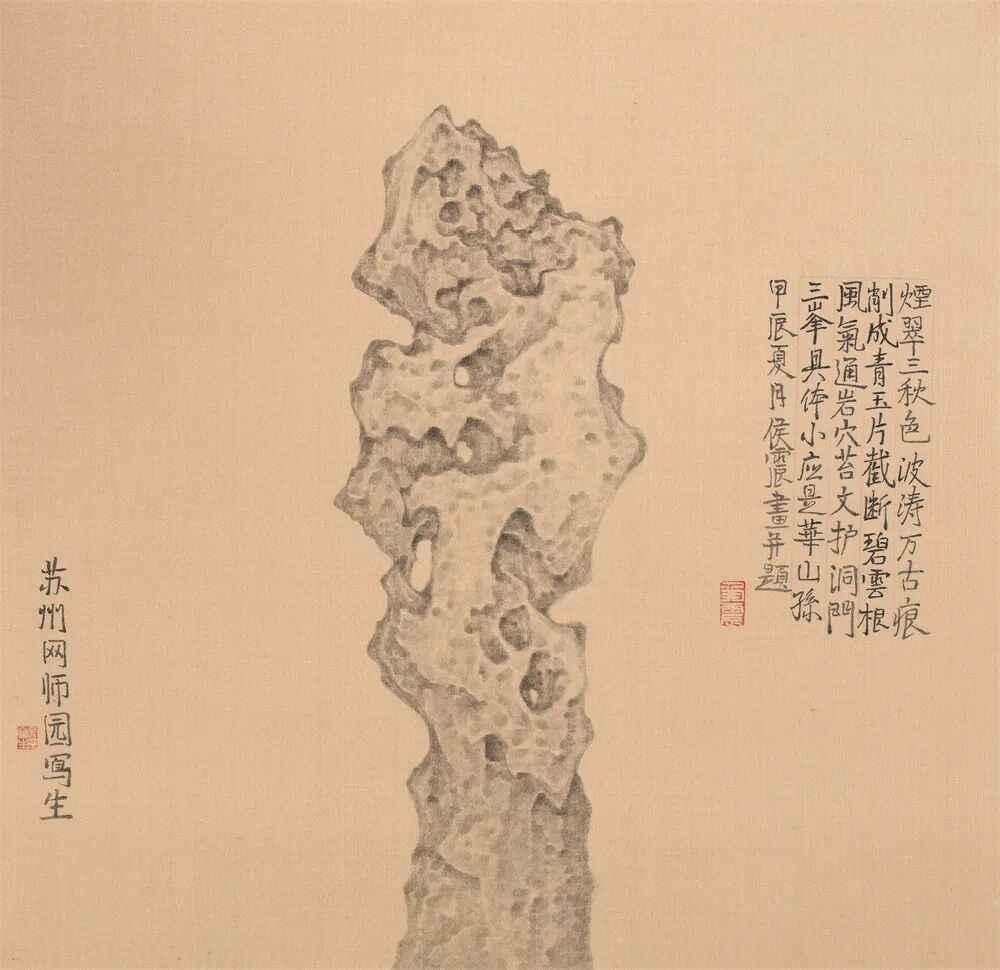 煙翠三秋色波涛万古痕
削成青玉片截断碧雲根
風氣通岩穴苔文护洞門
三峯具体小应是華山孫
甲辰夏月侯震畫并題
苏州网师园写生